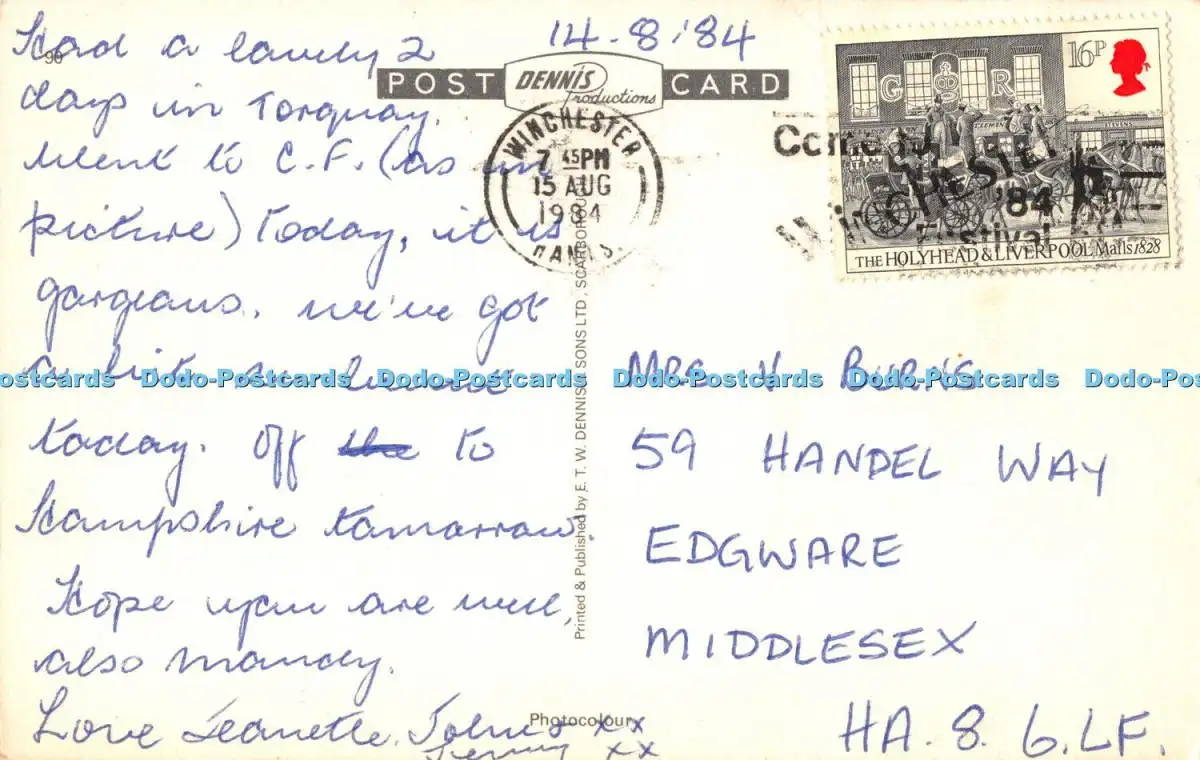 14-8-'84
96
Had a lovely 2
days in Torquay.
Went to C.F. (as in
picture) Today, it is
gorgeous. We've got
a bit
today. Off to
Hampshire tomorrow.
Hope you are well,
also Mandy.
Love Jeanette, John & xx
Jenny xx
POST CARD
DENNIS
Productions
WINCHESTER
7 45PM
15 AUG
1984
HANTS.
Come to
WINCHESTER
'84
Festival
16P
G R
STEVENS
THE HOLYHEAD & LIVERPOOL Mails 1828
Printed & Published by E. T. W. DENNIS & SONS LTD., SCARBOROUGH
Photocolour
MRS V BURNS
59 HANDEL WAY
EDGWARE
MIDDLESEX
HA. 8. 6. LF.
ostcards Dodo-Postcards Dodo-Postcards Dodo-Postcards Dodo-Postcards Dodo-Pos